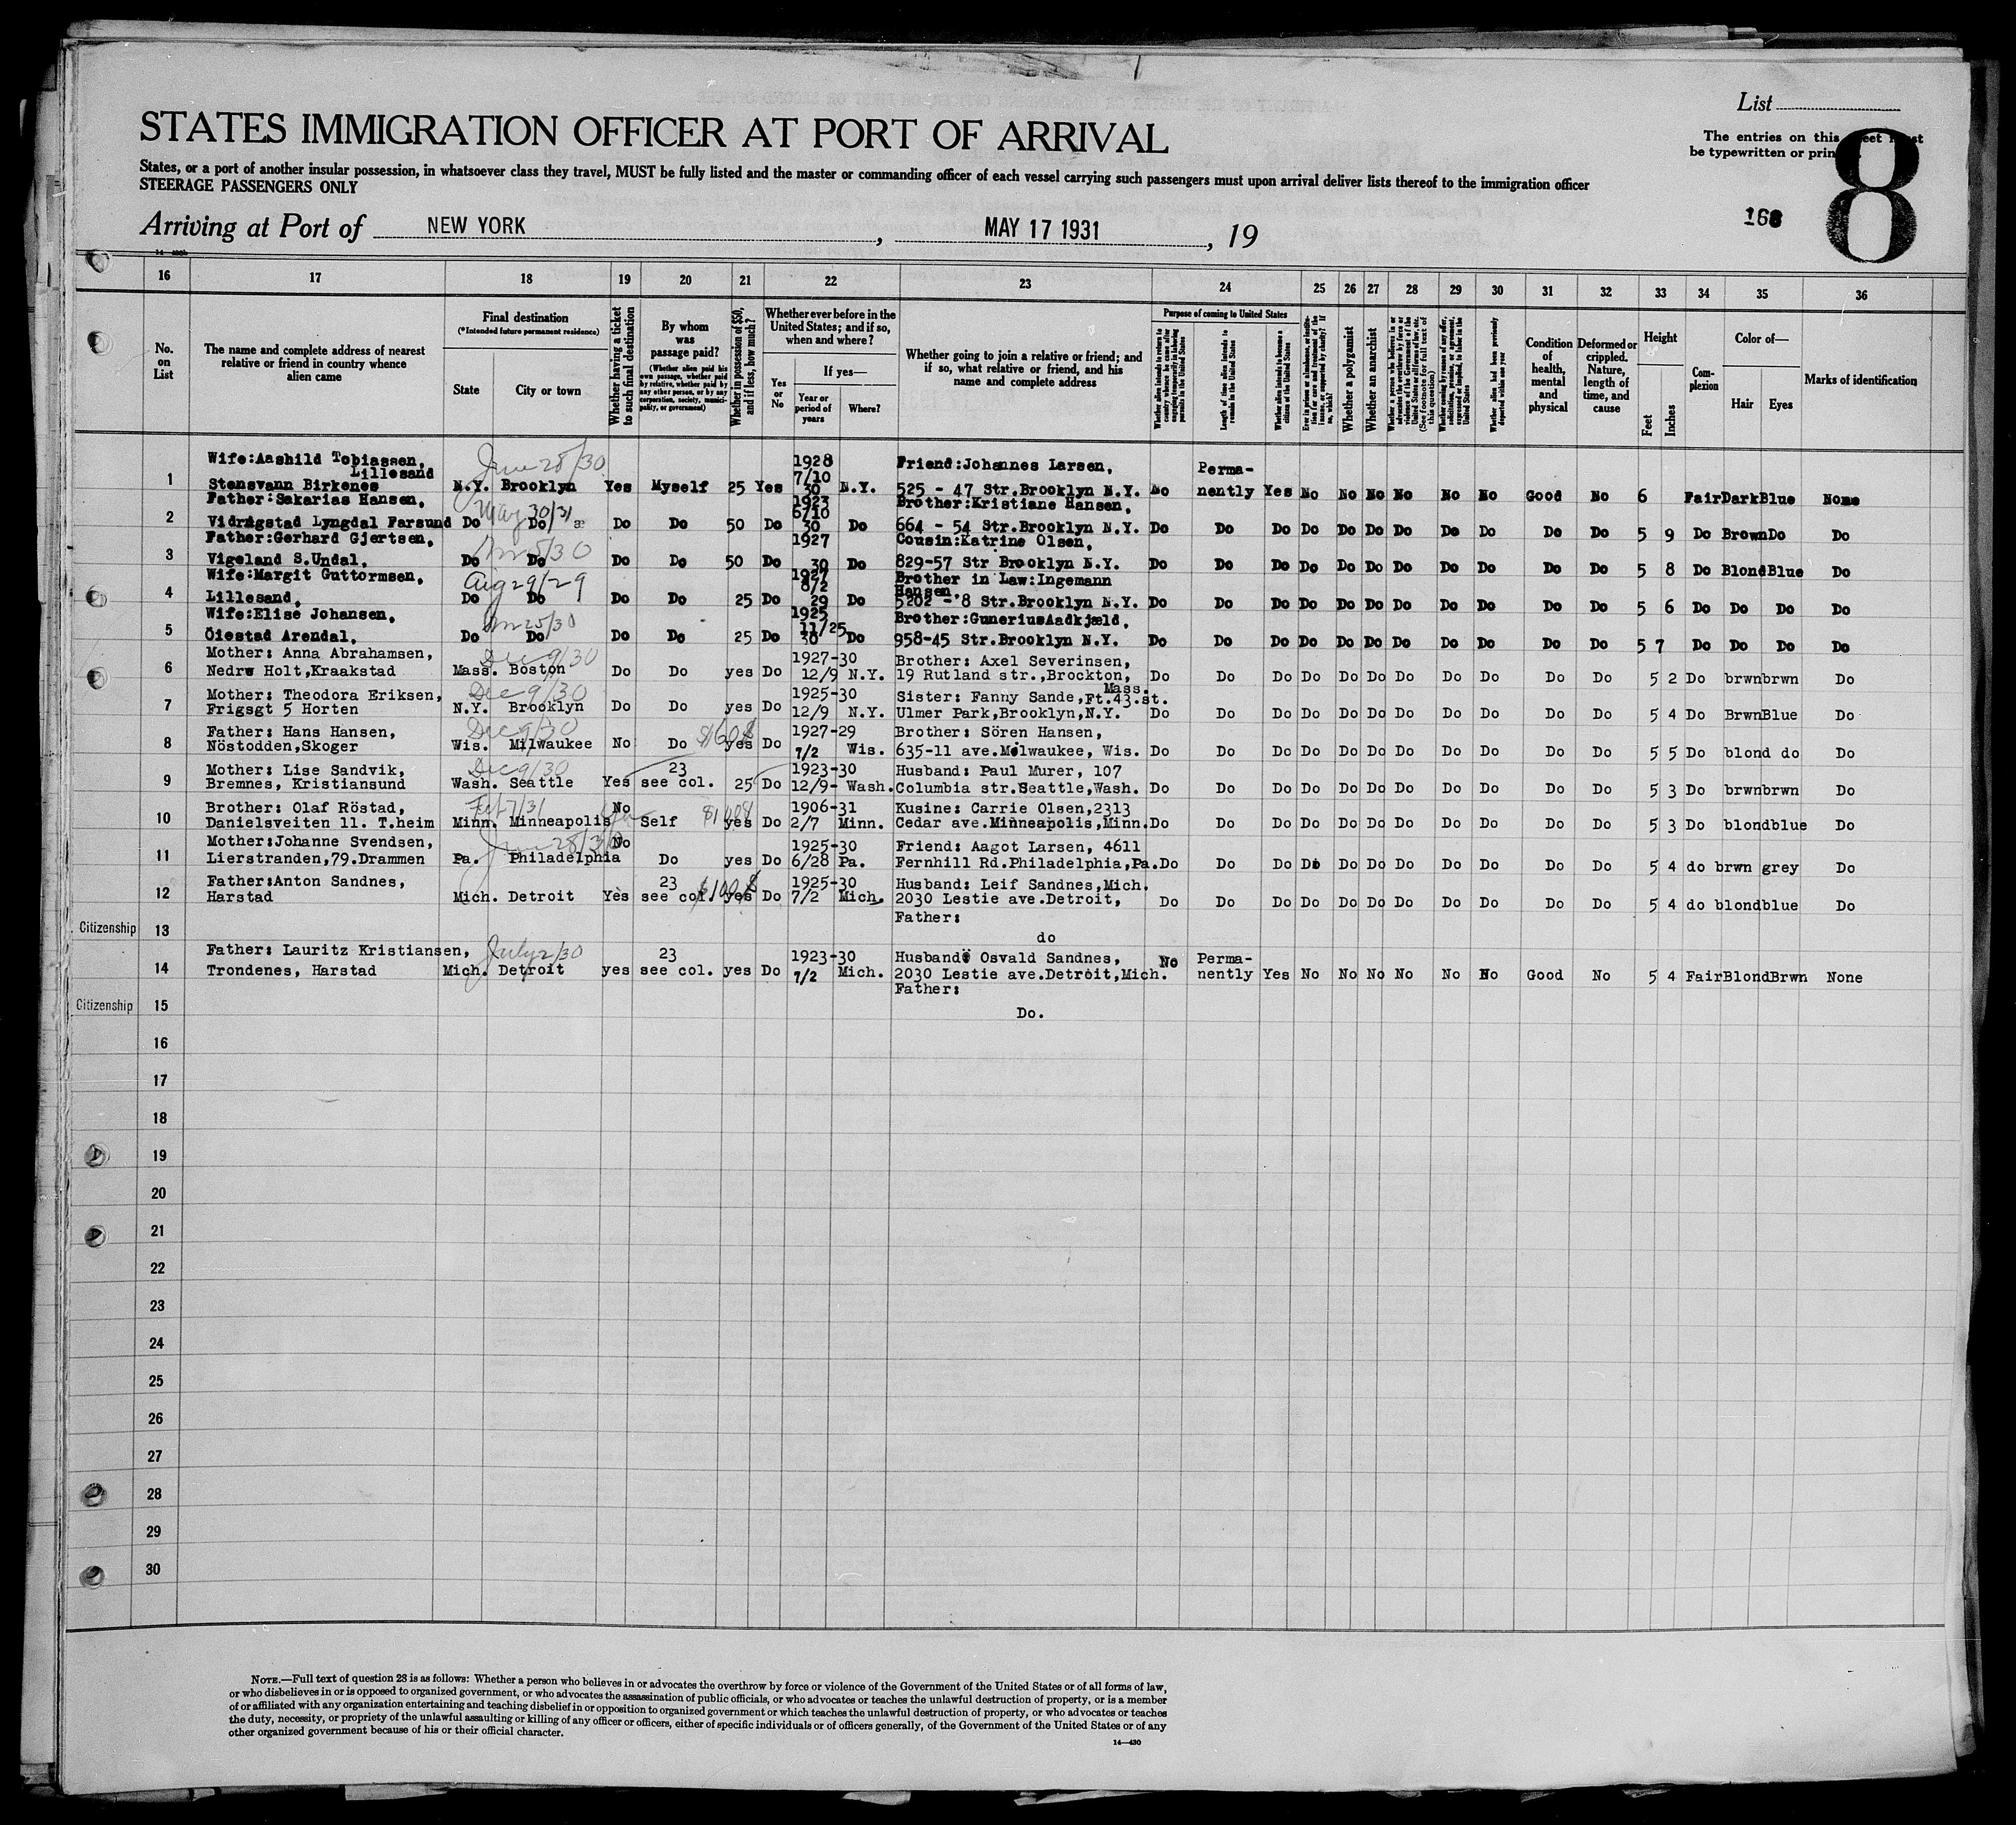 List
STATES IMMIGRATION OFFICER AT PORT OF ARRIVAL
The entries on this sheet must
be typewritten or printed.
8
States, or a port of another insular possession, in whatsoever class they travel, MUST be fully listed and the master or commanding officer of each vessel carrying such passengers must upon arrival deliver lists thereof to the immigration officer
STEERAGE PASSENGERS ONLY
168
Arriving at Port of NEW YORK, MAY 17 1931, 19
16 17 18 19 20 21 22 23 24 25 26 27 28 29 30 31 32 33 34 35 36
No. on List
The name and complete address of nearest relative or friend in country whence alien came
Final destination
(*Intended future permanent residence)
State
City or town
Whether having a ticket to such final destination
By whom was passage paid?
(Whether alien paid his own passage, whether paid by relative, whether paid by any other person, or by any corporation, society, municipality, or government)
Whether in possession of $50, and if less, how much?
Whether ever before in the United States; and if so, when and where?
Yes or No
If yes—
Year or period of years
Where?
Whether going to join a relative or friend; and if so, what relative or friend, and his name and complete address
Purpose of coming to United States
Whether alien intends to return to country whence he came after engaging temporarily in laboring pursuits in the United States
Length of time alien intends to remain in the United States
Whether alien intends to become a citizen of the United States
Whether a polygamist
Whether an anarchist
Whether alien had been previously deported within one year
Condition of health, mental and physical
Deformed or crippled. Nature, length of time, and cause
Height
Feet
Inches
Complexion
Color of—
Hair
Eyes
Marks of identification
1 Wife:Aashild Tobiassen, Lillesand Stensvann Birkenes N.Y. Brooklyn June 28/30 Yes Myself 25 Yes 1928 7/10 30 N.Y. Friend:Johannes Larsen, 525 - 47 Str.Brooklyn N.Y. No Permanently Yes No No No No No No Good No 6 Fair Dark Blue None
2 Father:Sakarias Hansen, Vidringstad Lyngdal Farsund Do Do May 30/31 Do Do 50 Do 1923 6/10 30 Do Brother:Kristiane Hansen, 664 - 54 Str.Brooklyn N.Y. Do Do Do Do Do Do Do Do Do Do Do 5 9 Do Brown Do Do
3 Father:Gerhard Gjertsen, Vigeland S.Undal, Do Do Do Do 50 Do 1927 30 Do Cousin:Katrine Olsen, 829-57 Str Brooklyn N.Y. Do Do Do Do Do Do Do Do Do Do Do 5 8 Do Blond Blue Do
4 Wife:Margit Guttormsen, Lillesand, Do Do Aug 29/29 Do Do 25 Do 1927 8/2 29 Do Brother in Law:Ingemann Hansen, 5202 - 8 Str.Brooklyn N.Y. Do Do Do Do Do Do Do Do Do Do Do 5 6 Do Do Do Do
5 Wife:Elise Johansen, Öiestad Arendal, Do Do Do Do 25 Do 1925 11/25 30 Do Brother:GuneriusAadkjæld, 958-45 Str.Brooklyn N.Y. Do Do Do Do Do Do Do Do Do Do Do 5 7 Do Do Do Do
6 Mother: Anna Abrahamsen, Nedre Holt,Kraakstad Mass. Boston Dec 9/30 Do Do yes Do 1927-30 12/9 N.Y. Brother: Axel Severinsen, 19 Rutland str.,Brockton, Mass. Do Do Do Do Do Do Do Do Do Do Do 5 2 Do brwn brwn Do
7 Mother: Theodora Eriksen, Frigsgt 5 Horten N.Y. Brooklyn Dec 9/30 Do Do yes Do 1925-30 12/9 N.Y. Sister: Fanny Sande,Ft.43.st. Ulmer Park,Brooklyn,N.Y. Do Do Do Do Do Do Do Do Do Do Do 5 4 Do Brwn Blue Do
8 Father: Hans Hansen, Nöstodden,Skoger Wis. Milwaukee Dec 9/30 No Do $160$ yes Do 1927-29 7/2 Wis. Brother: Sören Hansen, 635-11 ave.Milwaukee, Wis. Do Do Do Do Do Do Do Do Do Do Do 5 5 Do blond do Do
9 Mother: Lise Sandvik, Bremnes, Kristiansund Wash. Seattle Dec 9/30 Yes see col. 23 25 Do 1923-30 12/9- Wash. Husband: Paul Murer, 107 Columbia str.Seattle,Wash. Do Do Do Do Do Do Do Do Do Do Do 5 3 Do brwn brwn Do
10 Brother: Olaf Röstad, Danielsveiten 11. T.heim Minn. Minneapolis Feb 7/31 No Self $100$ yes Do 1906-31 2/7 Minn. Kusine: Carrie Olsen,2313 Cedar ave.Minneapolis,Minn. Do Do Do Do Do Do Do Do Do Do Do 5 3 Do blond blue Do
11 Mother:Johanne Svendsen, Lierstranden,79.Drammen Pa. Philadelphia June 28/30 No Do yes Do 1925-30 6/28 Pa. Friend: Aagot Larsen, 4611 Fernhill Rd.Philadelphia,Pa. Do Do Do Do Do Do Do Do Do Do Do 5 4 do brwn grey Do
12 Father:Anton Sandnes, Harstad Mich. Detroit Yes see col. 23 $100$ yes Do 1925-30 7/2 Mich. Husband: Leif Sandnes,Mich. 2030 Lestie ave.Detroit, Do Do Do Do Do Do Do Do Do Do Do 5 4 do blond blue Do
Citizenship 13 Father: do
14 Father: Lauritz Kristiansen, Trondenes, Harstad Mich. Detroit July 2/30 yes see col. 23 yes Do 1923-30 7/2 Mich. Husband: Osvald Sandnes, 2030 Lestie ave.Detroit,Mich. No Permanently Yes No No No No No No Good No 5 4 Fair Blond Brwn None
Citizenship 15 Father: Do.
16
17
18
19
20
21
22
23
24
25
26
27
28
29
30
NOTE.—Full text of question 28 is as follows: Whether a person who believes in or advocates the overthrow by force or violence of the Government of the United States or of all forms of law,
or who disbelieves in or is opposed to organized government, or who advocates the assassination of public officials, or who advocates or teaches the unlawful destruction of property, or is a member
of or affiliated with any organization entertaining and teaching disbelief in or opposition to organized government or which teaches the unlawful destruction of property, or who advocates or teaches
the duty, necessity, or propriety of the unlawful assaulting or killing of any officer or officers, either of specific individuals or of officers generally, of the Government of the United States or of any
other organized government because of his or their official character.
14—430